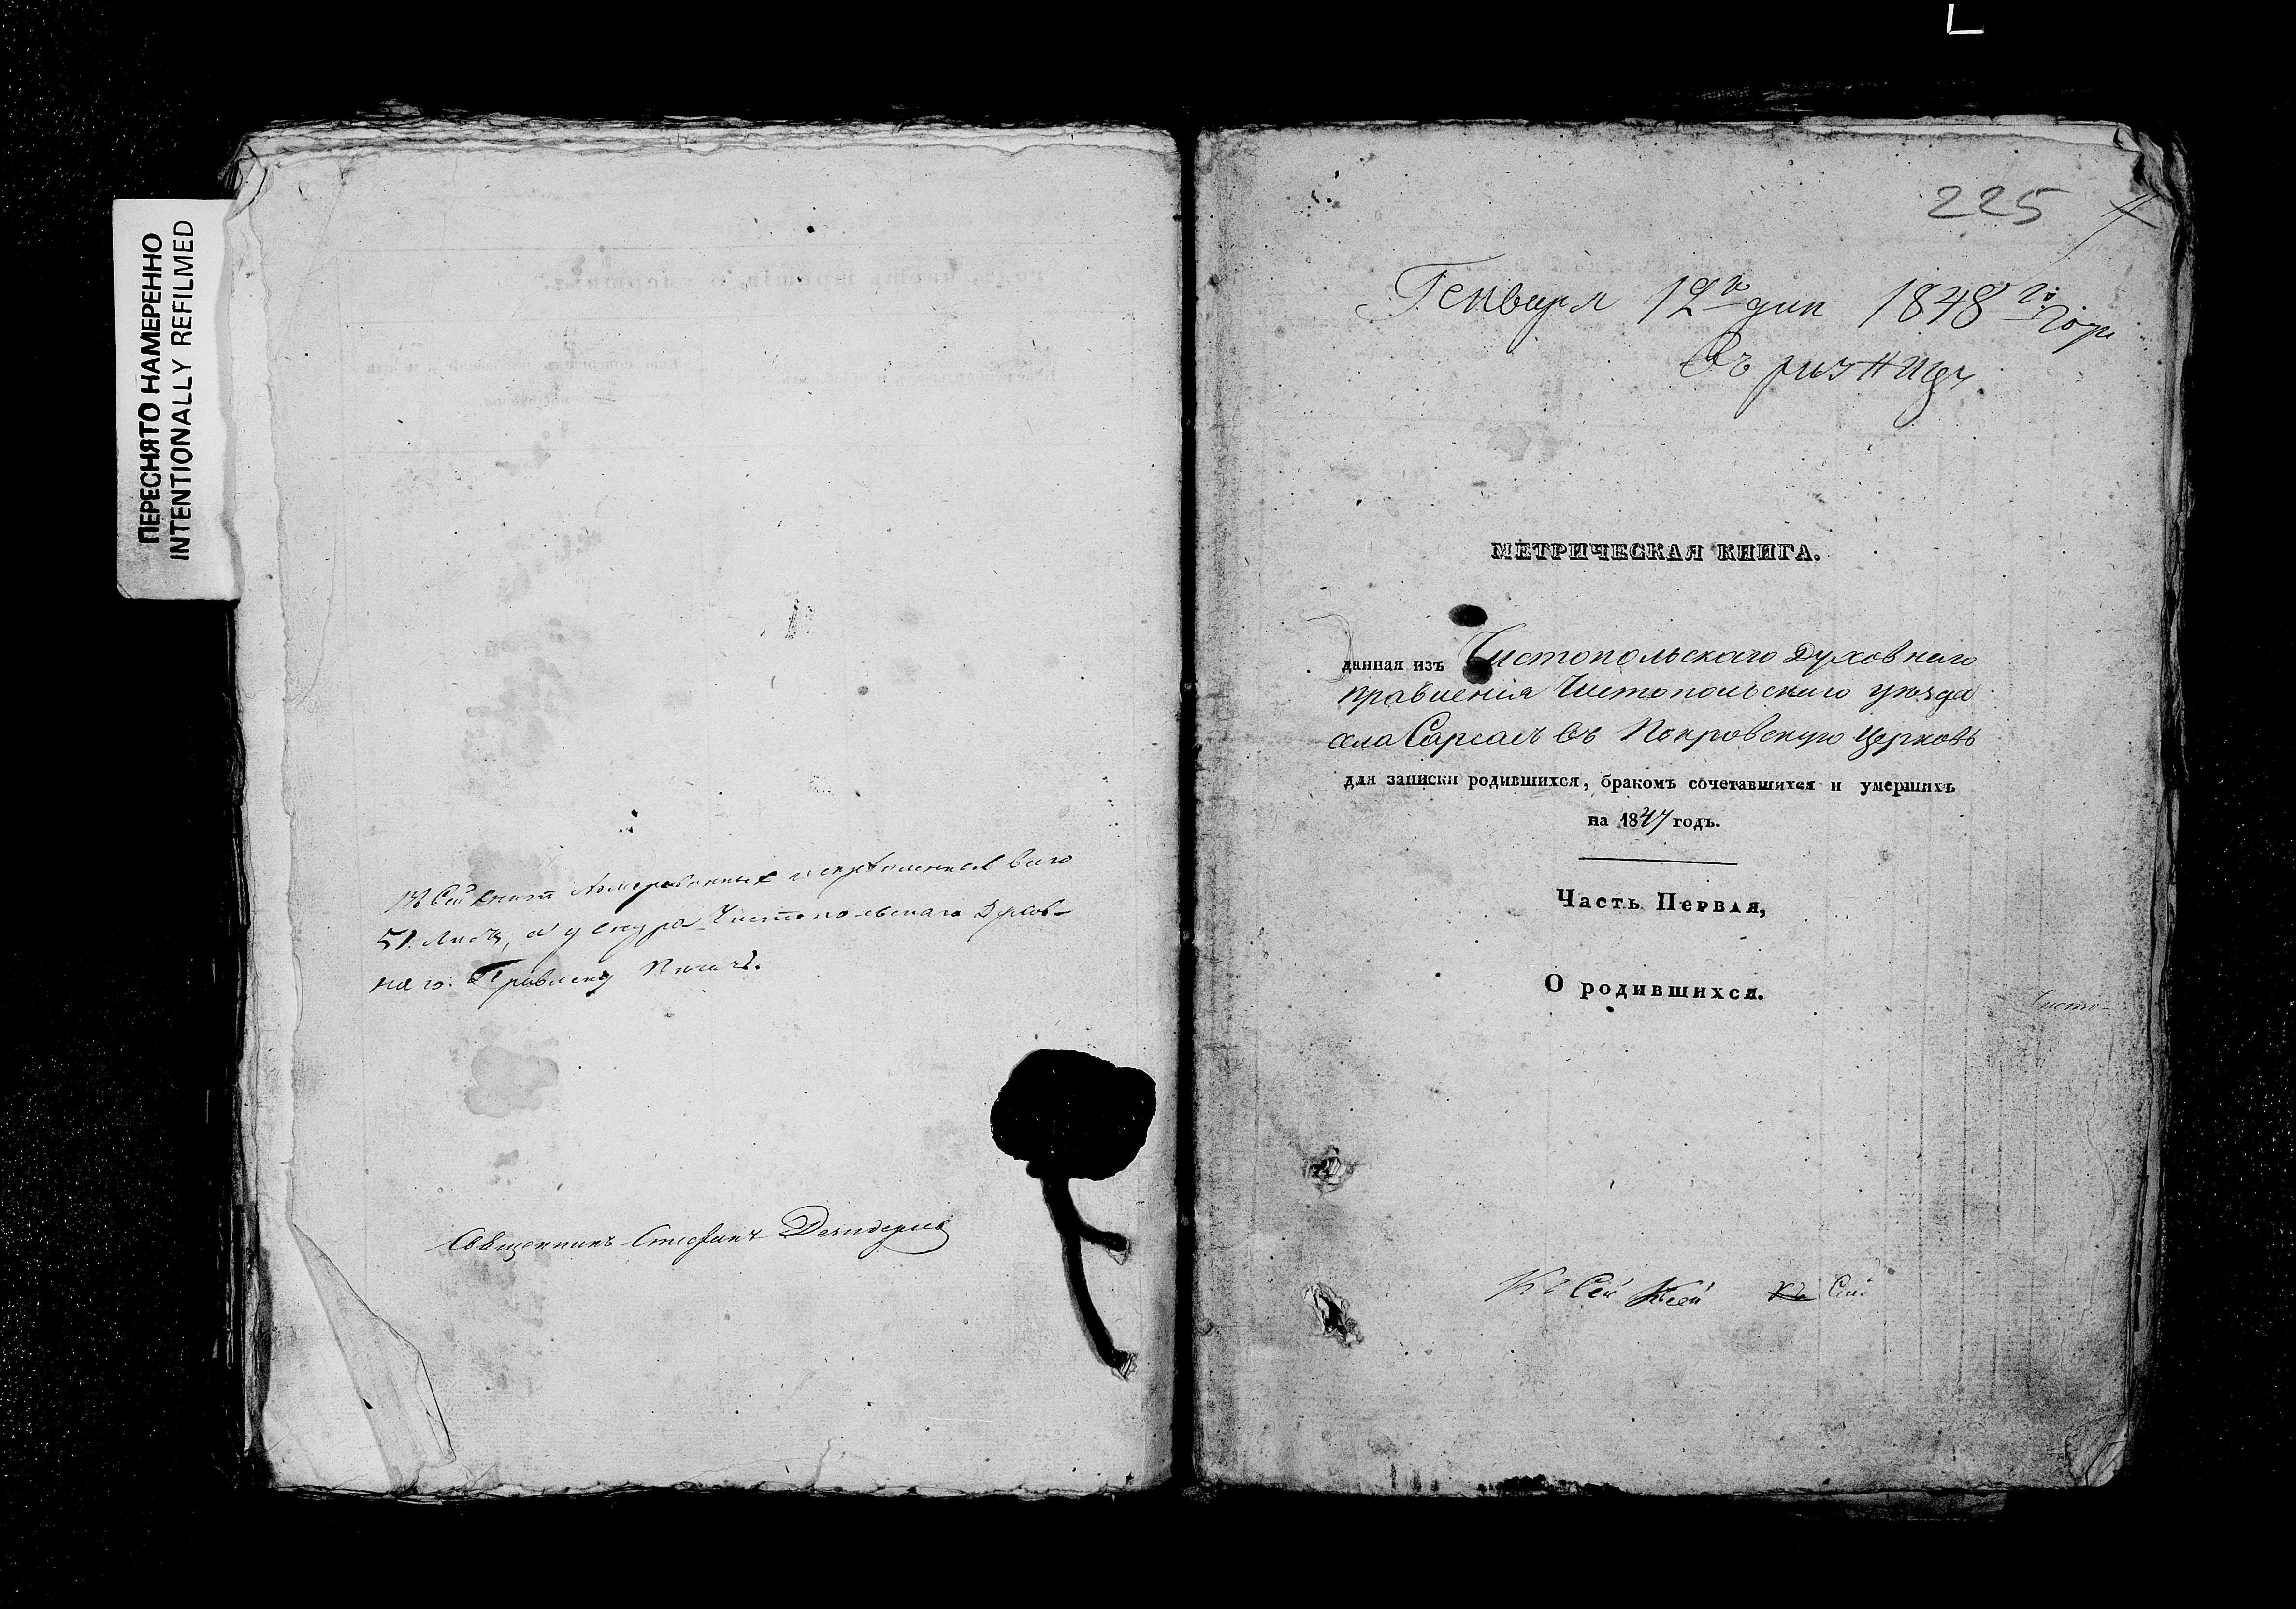 ПЕРЕСНЯТО НАМЕРЕННО
INTENTIONALLY REFILMED
Въ Сей книгѣ Номерованныхъ и скрѣпленныхъ всего
51. Листъ, а у снура Чистопольскаго Духов-
наго. Правленія Печать.
Священникъ Стефанъ
225
Генваря 12го дня 1848го Года
Въ ризницу
МЕТРИЧЕСКАЯ КНИГА.
данная изъ Чистопольскаго Духовнаго
Правленія Чистопольскаго уѣзда
села Сарсасъ въ Покровскую Церковь
для записки родившихся, бракомъ сочетавшихся и умершихъ
на 1847 годъ.
Часть Первая,
О родившихся.
Чисто-
Къ Сей